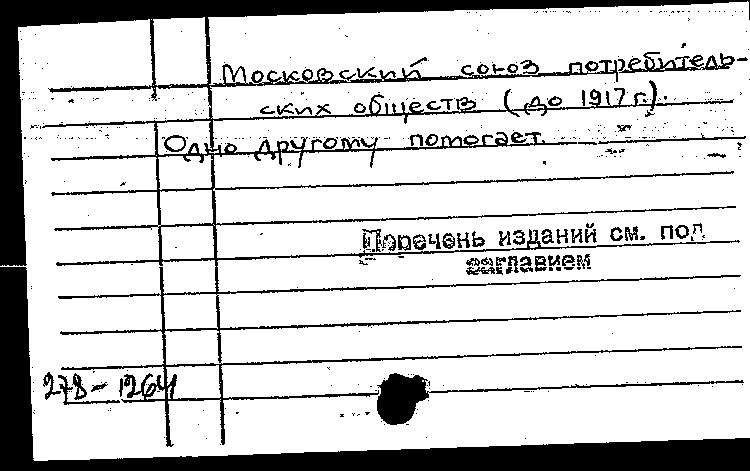 Московский союз потребитель-
ских обществ (до 1917 г.).
Одно другому помогает.
Перечень изданий см. под
заглавием
278-1264